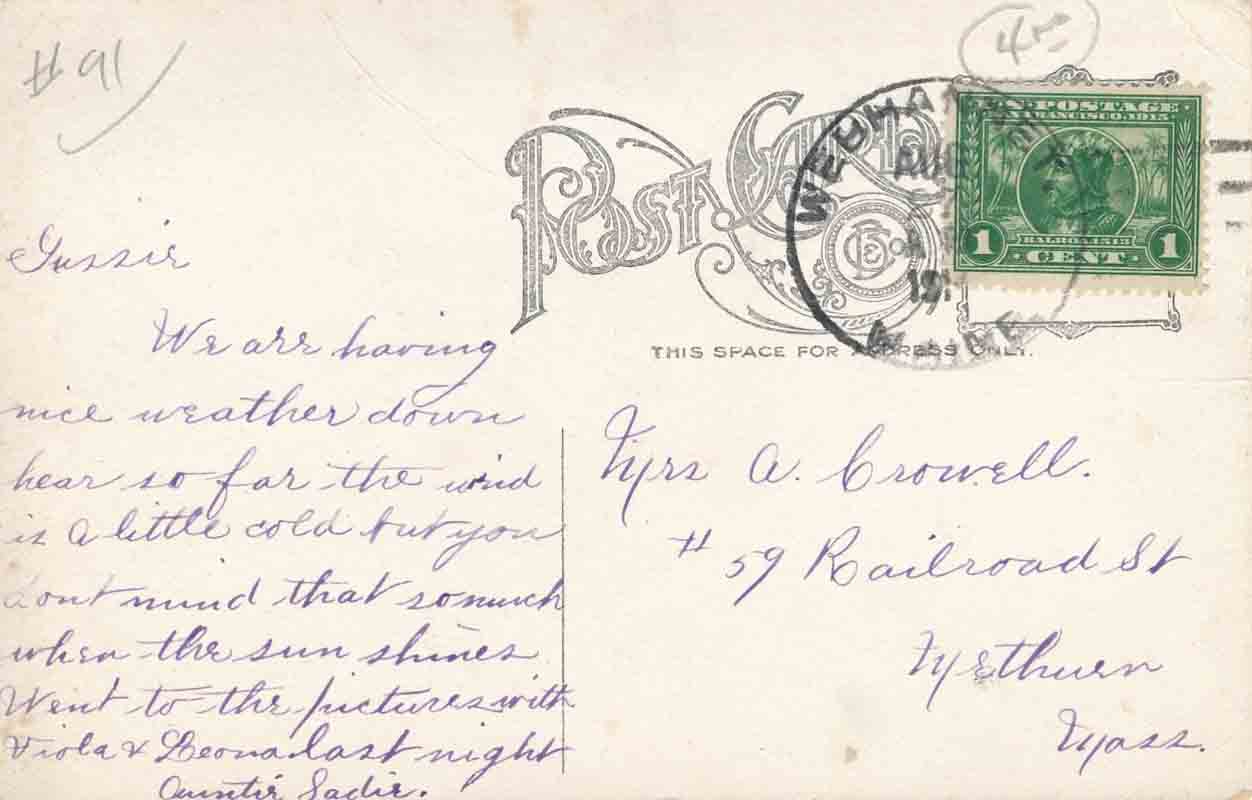 #91
4
POST CARD
AUG
191
MAINE
PAN-POSTAGE
SAN FRANCISCO, 1915
BALBOA 1513
1 CENT 1
THIS SPACE FOR ADDRESS ONLY.
Gussie
We are having
nice weather down
hear so far the wind
is a little cold but you
dont mind that so much
when the sun shines
Went to the pictures with
Viola & Leona last night
Auntie Sadie.
Mrs A. Crowell.
# 59 Railroad St
Methuen
Mass.